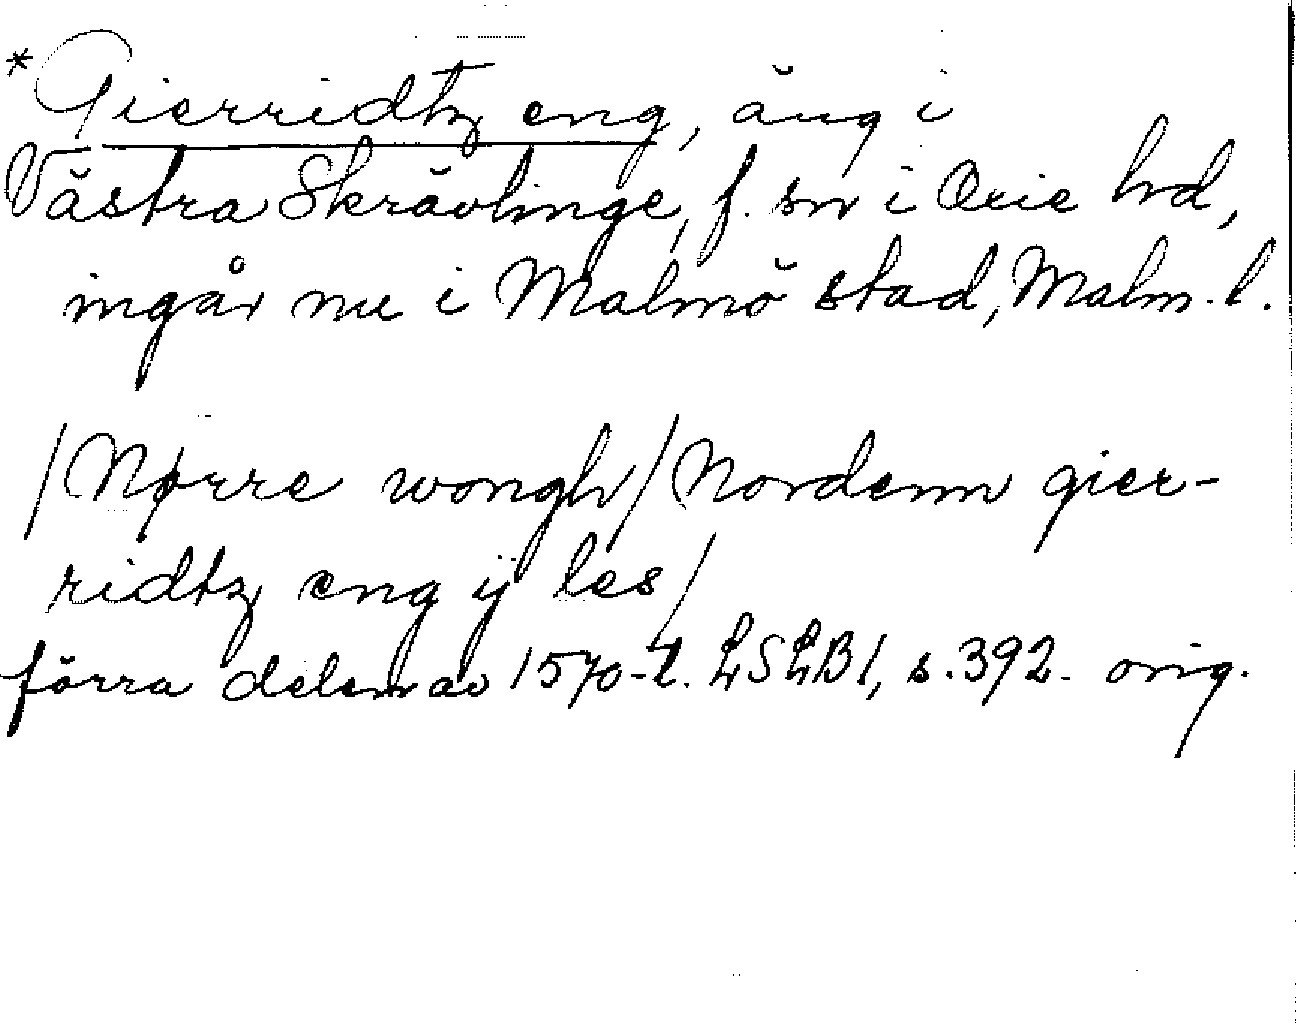 *Gierridtz eng, äng i
Västra Skrävlinge, f. sn i Oxie hd,
ingår nu i Malmö stad, Malm. l.
/Nørre wongh/ Nordenn gier-
ridtz eng ÿ les/
förra delen av 1570-t. LSLB1, s. 392. orig.